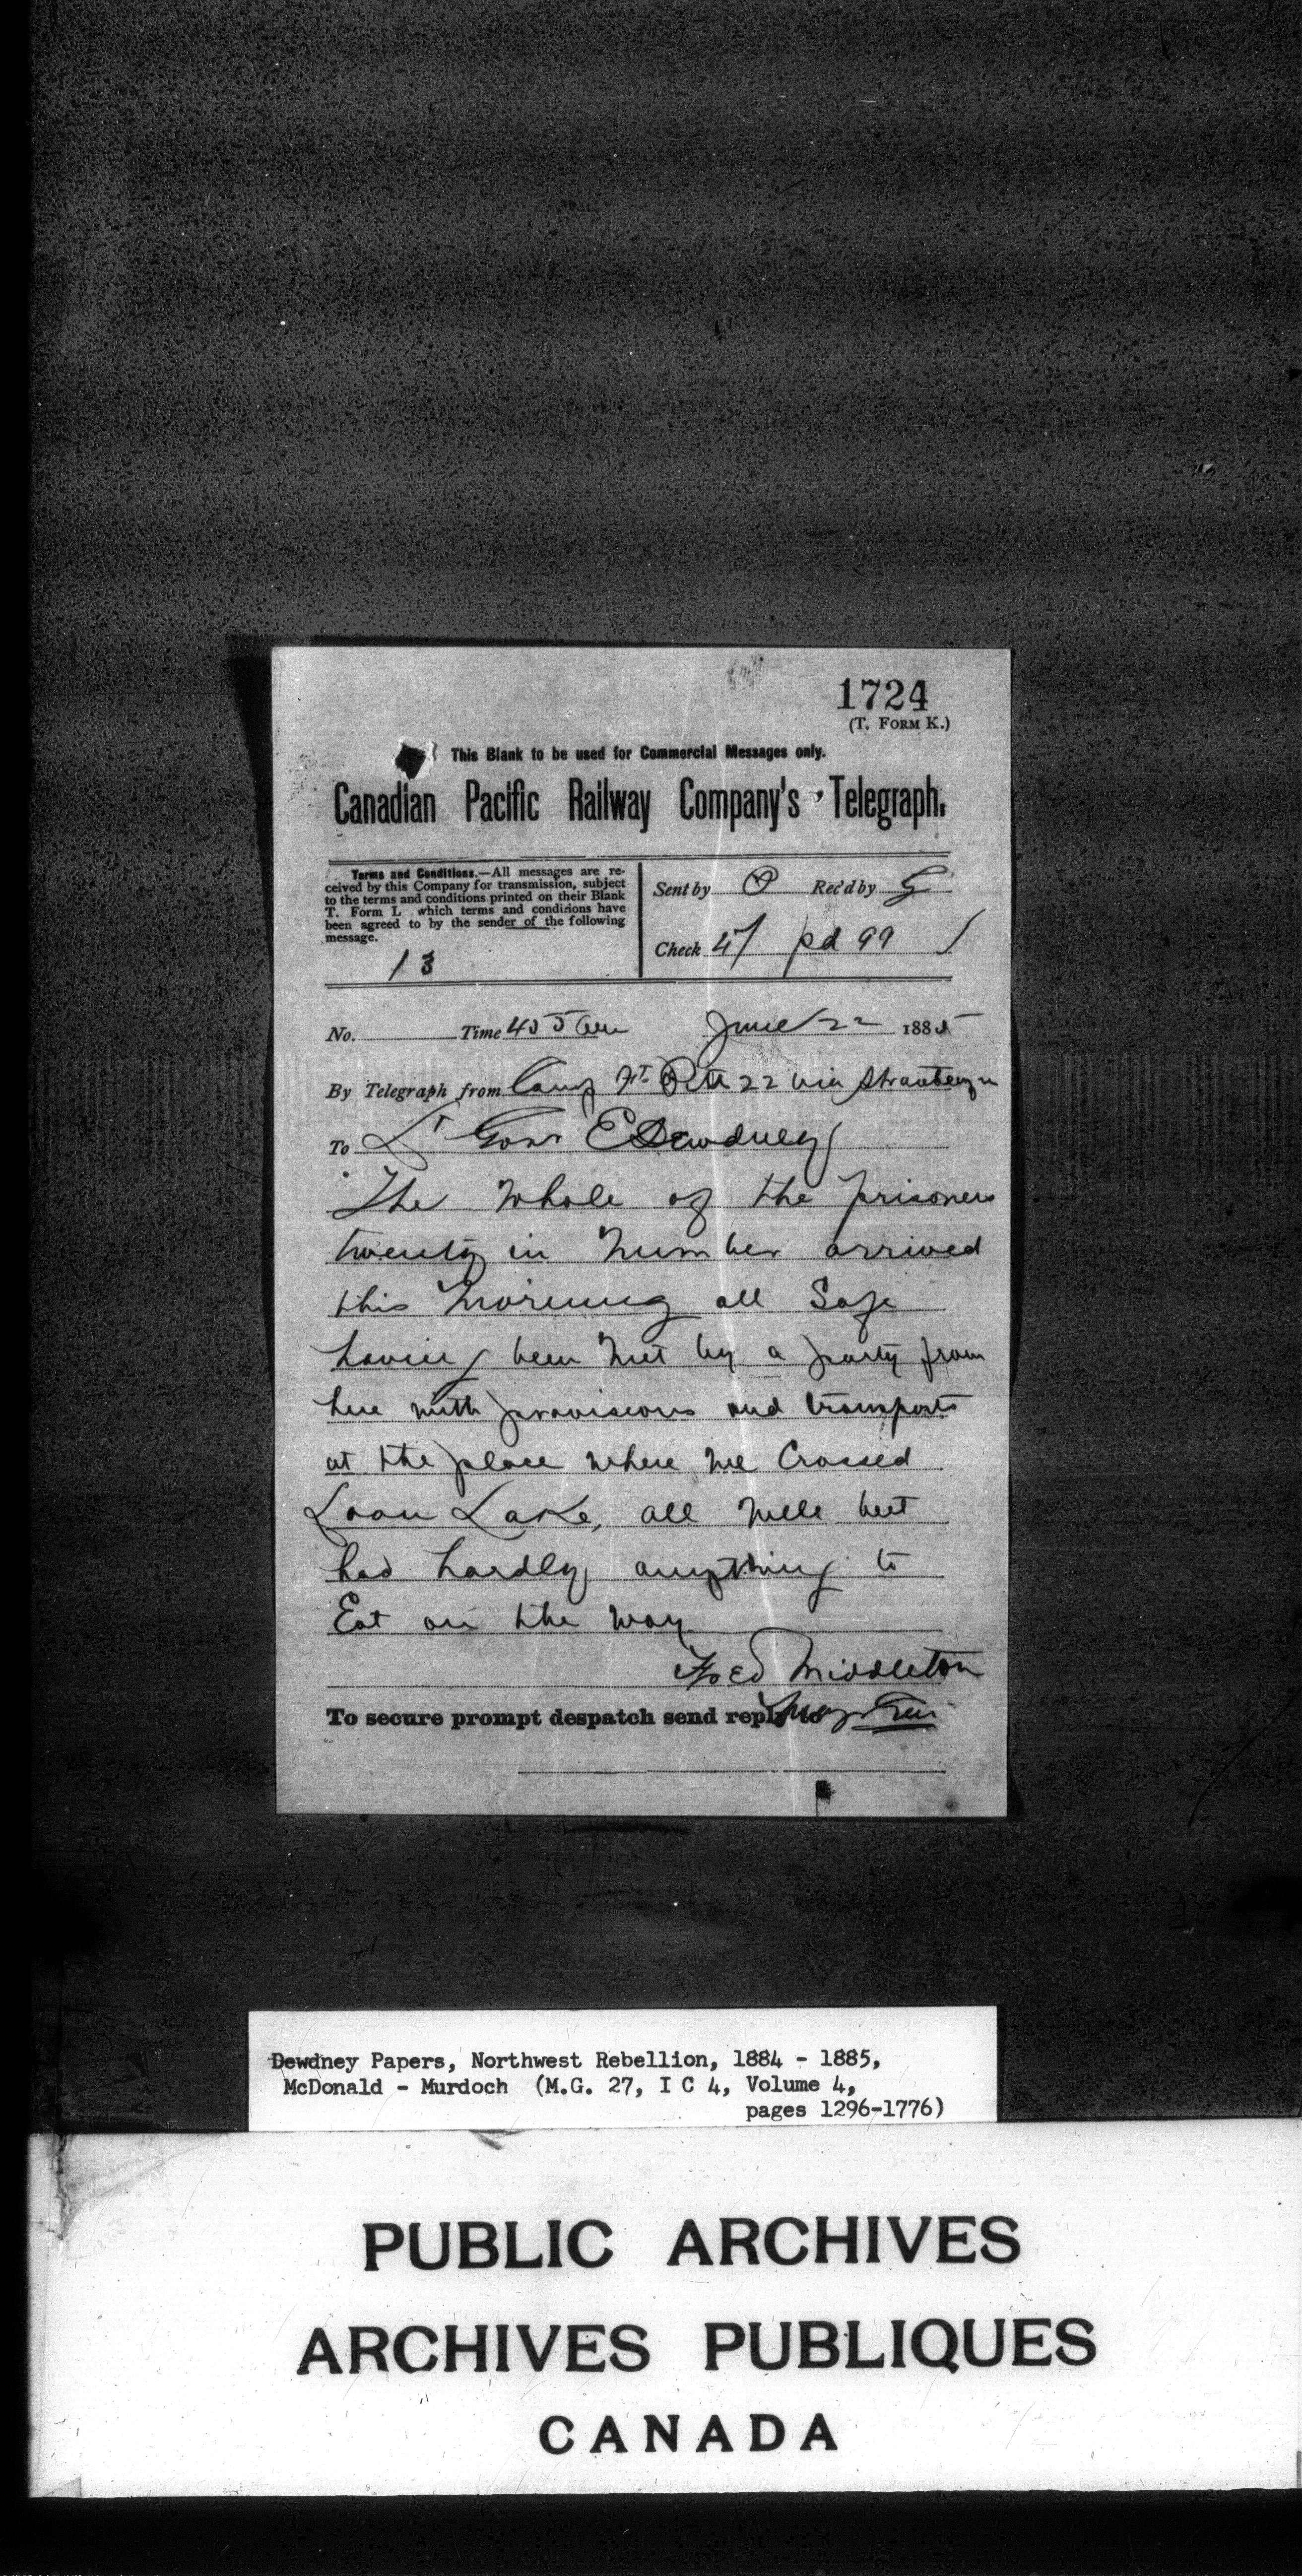 1724
(T. FORM K.)
This Blank to be used for Commercial Messages only.
Canadian Pacific Railway Company's Telegraph.
Terms and Conditions.—All messages are re-
ceived by this Company for transmission, subject
to the terms and conditions printed on their Blank
T. Form L which terms and conditions have
been agreed to by the sender of the following
message.
13
Sent by O Rec'd by G
Check 47 pd 99
No. Time 455 am June 22 1885
By Telegraph from Camp Ft Pitt 22 via
To Lt Govr E Dewdney
The whole of the prisoners
twenty in number arrived
this morning all Safe
having been met by a party from
here with provisions and transports
at the place where we Crossed
Loon Lake, all well but
had hardly anything to
Eat on the way
Fred Middleton
Maj Gen
To secure prompt despatch send reply to
Dewdney Papers, Northwest Rebellion, 1884 - 1885,
McDonald - Murdoch (M.G. 27, I C 4, Volume 4,
pages 1296-1776)
PUBLIC ARCHIVES
ARCHIVES PUBLIQUES
CANADA